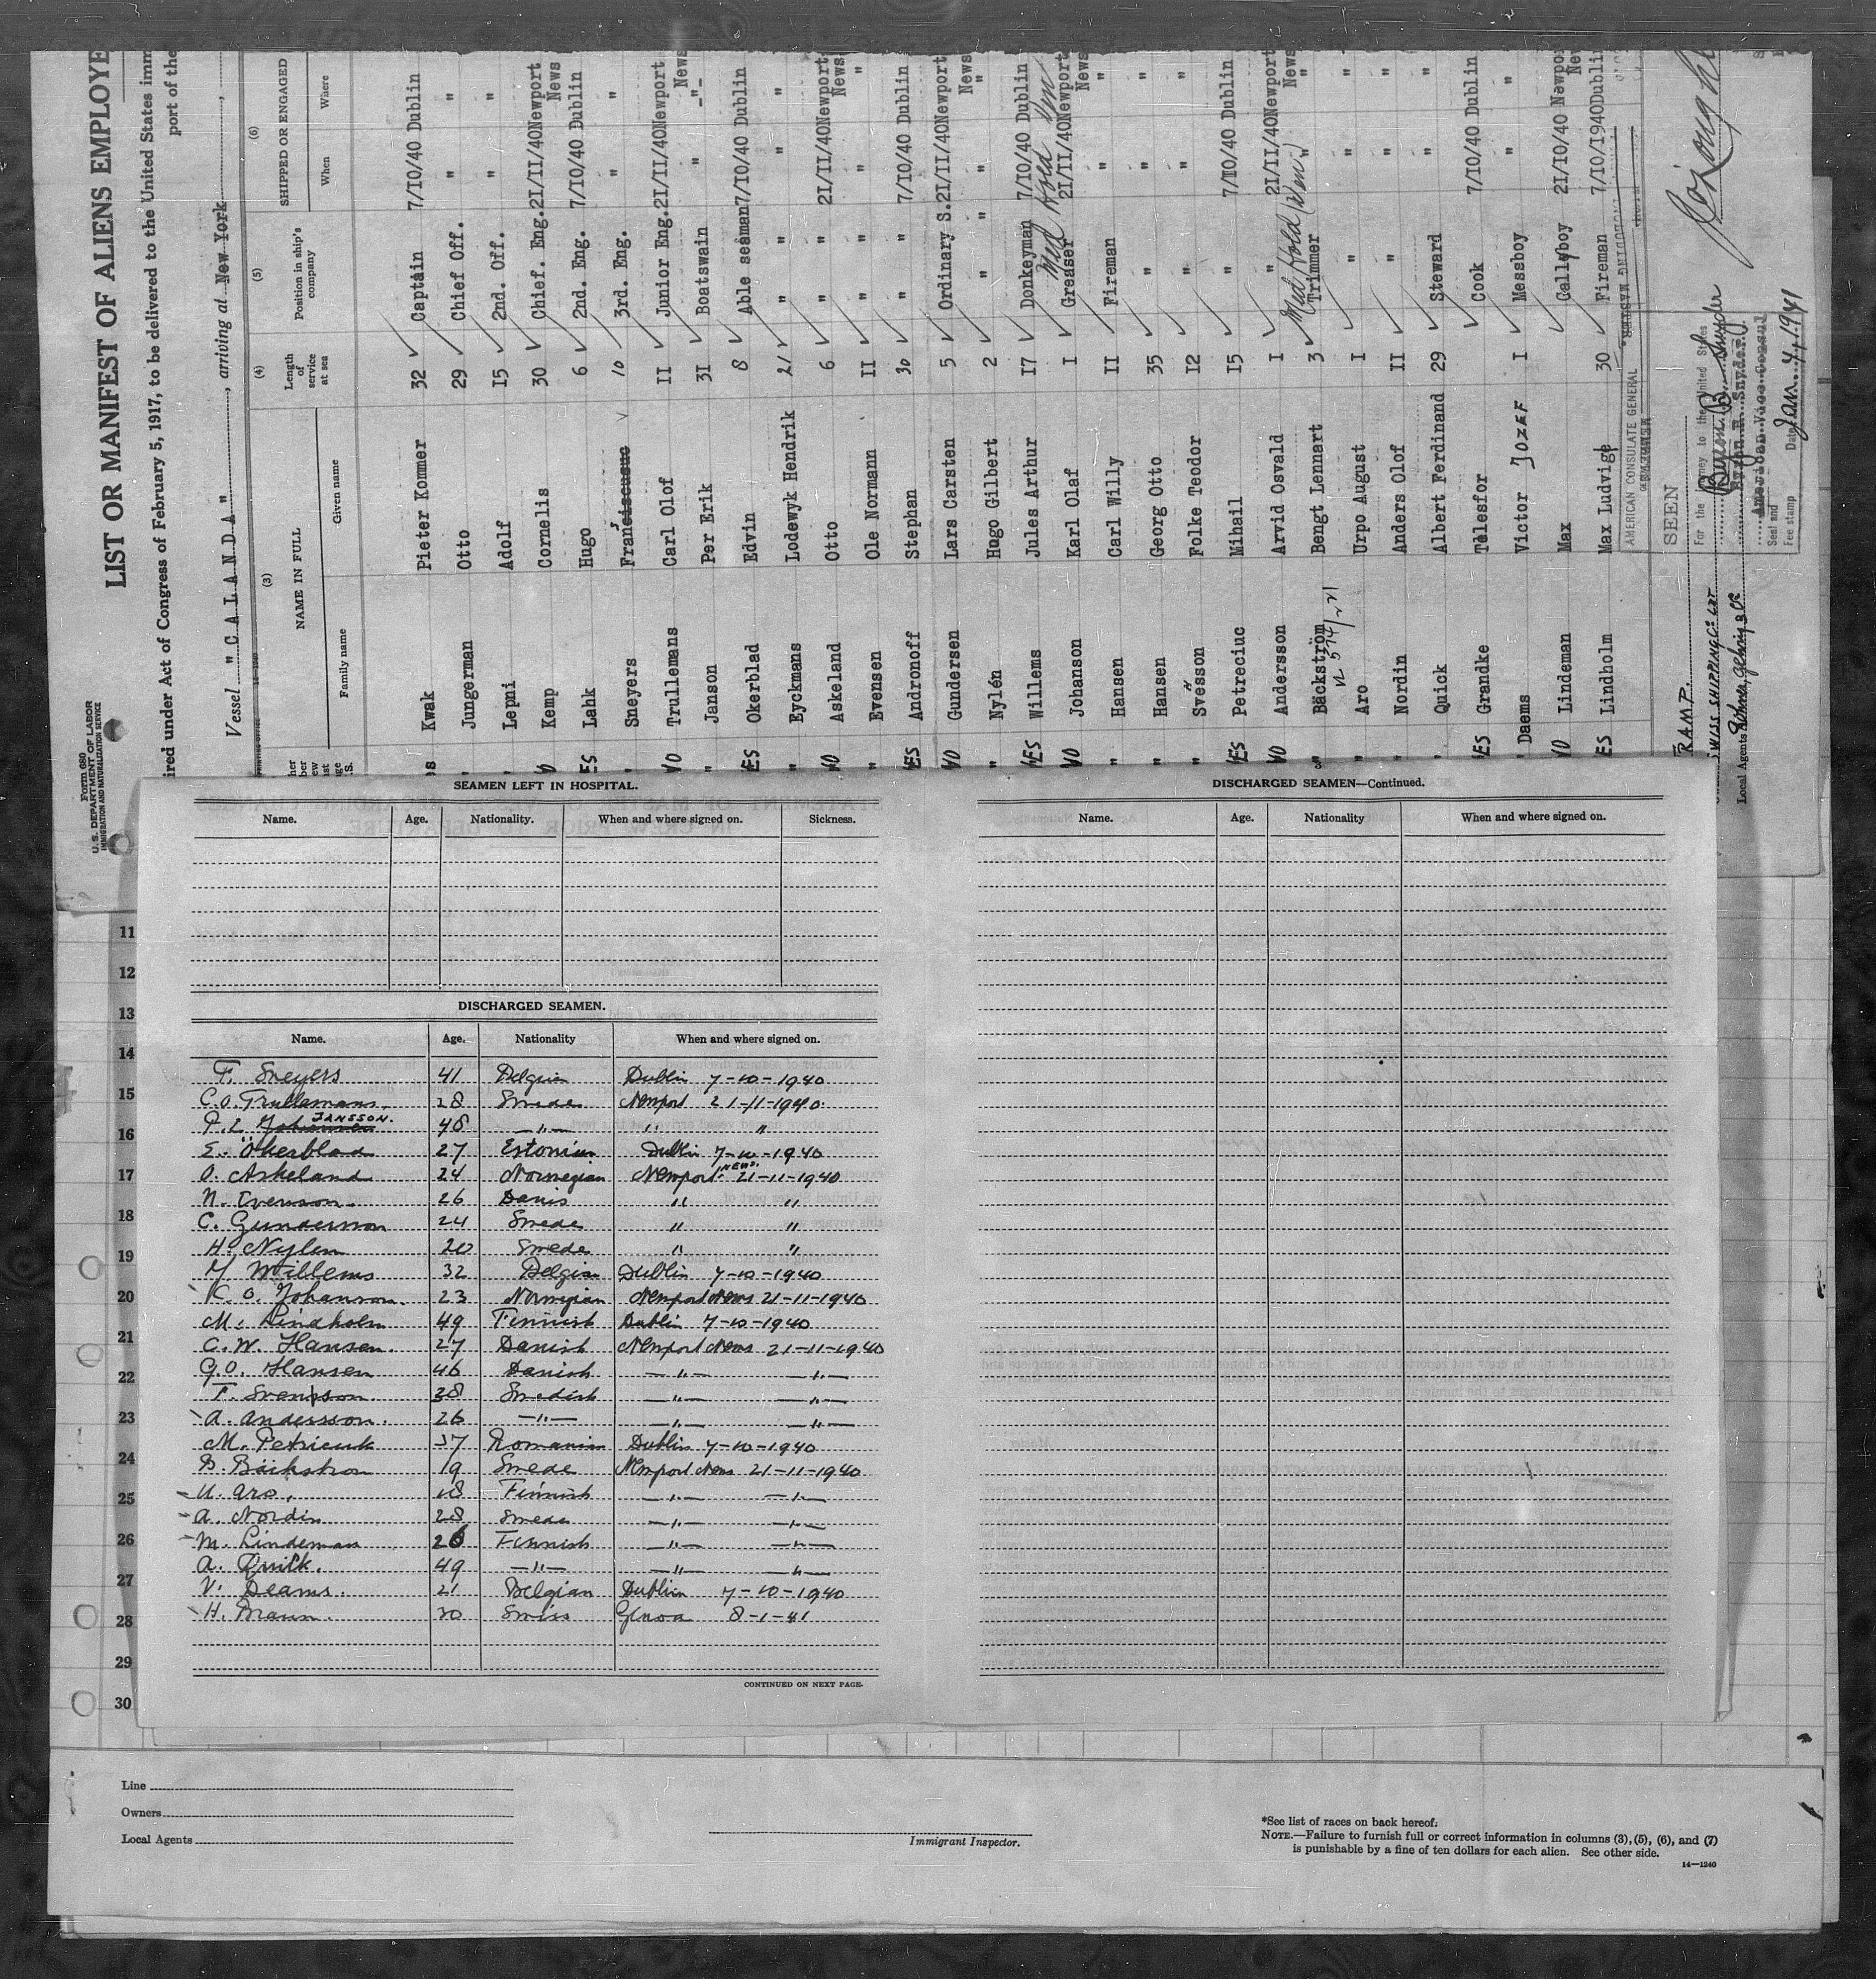 Form 680
U. S. DEPARTMENT OF LABOR
IMMIGRATION AND NATURALIZATION SERVICE
LIST OR MANIFEST OF ALIENS EMPLOYE
ired under Act of Congress of February 5, 1917, to be delivered to the United States imm
port of the
Vessel "CALANDA", arriving at New York
(3) (4) (5) (6)
NAME IN FULL Length of service at sea Position in ship's company SHIPPED OR ENGAGED
Family name Given name When Where
Kwak Pieter Kommer 32 Captain 7/10/40 Dublin
Jungerman Otto 29 Chief Off. " "
Lepmi Adolf 15 2nd. Off. " "
Kemp Cornelis 30 Chief. Eng. 21/11/40 Newport News
Lahk Hugo 6 2nd. Eng. 7/10/40 Dublin
Sneyers Franciscusuc 10 3rd. Eng. " "
Trullemans Carl Olof 11 Junior Eng. 21/11/40 Newport News
Janson Per Erik 31 Boatswain " -"-
Okerblad Edvin 8 Able seaman 7/10/40 Dublin
Eyckmans Lodewyk Hendrik 21 " " "
Askeland Otto 6 " 21/11/40 Newport News
Evensen Ole Normann 11 " " "
Andronoff Stephan 30 " 7/10/40 Dublin
Gundersen Lars Carsten 5 Ordinary S. 21/11/40 Newport News
Nylén Hugo Gilbert 2 " " "
Willems Jules Arthur 17 Donkeyman 7/10/40 Dublin
Med Hold Ven
Johanson Karl Olaf 1 Greaser 21/11/40 Newport News
Hansen Carl Willy 11 Fireman " "
Hansen Georg Otto 35 " " "
Svesson Folke Teodor 12 " " "
Petreciuc Mihail 15 " 7/10/40 Dublin
Andersson Arvid Osvald 1 " 21/11/40 Newport News
Med Hold (Ven)
Bäckström Bengt Lennart 3 Trimmer " "
Aro Urpo August 1 " " "
Nordin Anders Olof 11 " " "
Quick Albert Ferdinand 29 Steward " "
Grandke Telesfor Cook 7/10/40 Dublin
Daems Victor JOZEF 1 Messboy " "
Lindeman Max Gallyboy 21/10/40 Newpor Ne
Lindholm Max Ludvige 30 Fireman 7/10/1940 Dubli
AMERICAN CONSULATE GENERAL
SEEN
For the journey to the United States
Byron B. Snyder
Byron B. Snyder
American Vice Consul
Seal and
Fee stamp Date Jan. 4, 1941
TRAMP.
SWISS SHIPPING Co LDT
Local Agents
SEAMEN LEFT IN HOSPITAL.
Name. Age. Nationality. When and where signed on. Sickness.
DISCHARGED SEAMEN.
Name. Age. Nationality When and where signed on.
F. Sneyers 41 Belgian Dublin 7-10-1940
C.O. Trullemans. 28 Swede Newport 21-11-1940.
P.E. Johansson JANSSON. 48 -"- " "
E. Ökerblad 27 Estonian Dublin 7-10-1940
O. Askeland 24 Norwegian Newport NEWS. 21-11-1940
N. Evenson. 26 Danis " "
C. Gunderson 24 Swede " "
H. Nylen 20 Swede " "
Y Willems 32 Belgian Dublin 7-10-1940
K. O. Johanson. 23 Norwegian Newport News 21-11-1940
M. Lindholm 49 Finnish Dublin 7-10-1940
C. W. Hansen. 27 Danish Newport News 21-11-1940
G.O. Hansen 46 Danish -"- -"-
F. Svensson 28 Swedish -"- -"-
A. Andersson. 26 -"- -"- -"-
M. Petricuk 37 Romanian Dublin 7-10-1940
B. Bäckstron 19 Swede Newport News 21-11-1940
U. Aro, 18 Finnish -"- -"-
A. Nordin 28 Swede -"- -"-
M. Lindeman 26 Finnish -"- -"-
A. Quick. 49 -"- -"- -"-
V. Deams. 21 Belgian Dublin 7-10-1940
H. Braun. 30 Swiss Genoa 8-1-41
CONTINUED ON NEXT PAGE.
DISCHARGED SEAMEN—Continued.
Name. Age. Nationality When and where signed on.
11
12
13
14
15
16
17
18
19
20
21
22
23
24
25
26
27
28
29
30
Line
Owners
Local Agents
Immigrant Inspector.
*See list of races on back hereof.
NOTE.—Failure to furnish full or correct information in columns (3), (5), (6), and (7)
is punishable by a fine of ten dollars for each alien. See other side.
14—1240